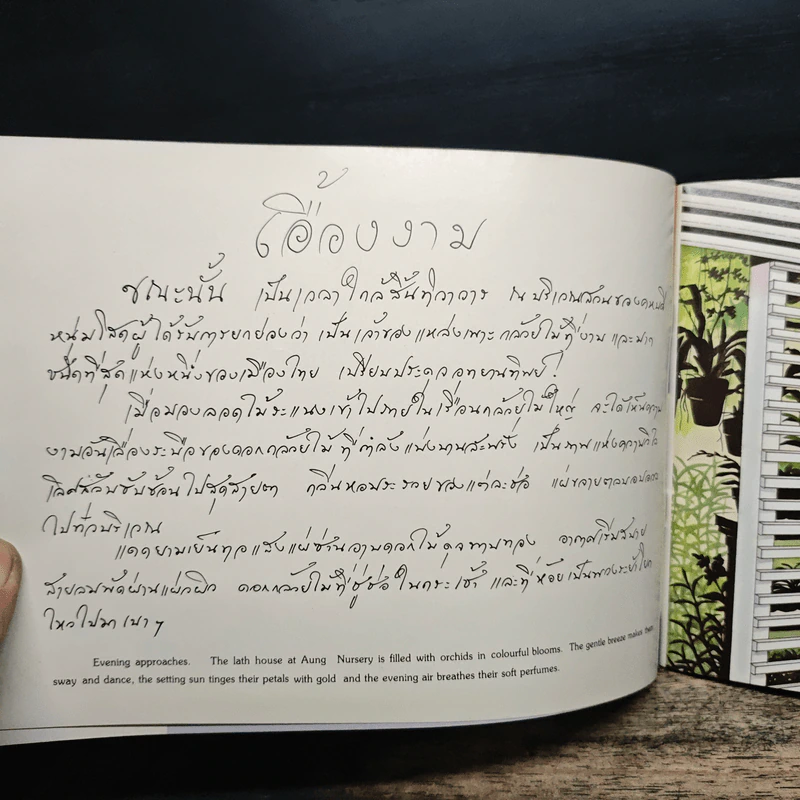 เอื้องงาม
ขณะนั้น เป็นเวลาใกล้สิ้นทิวาวาร ณ บริเวณสวนของคหบดี
หนุ่มโสดผู้ได้รับการยกย่องว่า เป็นเจ้าของแหล่งเพาะกล้วยไม้ที่งาม และมาก
ชนิดที่สุดแห่งหนึ่งของเมืองไทย เปรียบประดุจอุทยานทิพย์!
เมื่อมองลอดไม้ระแนงเข้าไปภายในเรือนกล้วยไม้ใหญ่ จะได้เห็นความ
งามอันเลื่องระบือของดอกกล้วยไม้ ที่กำลังแบ่งบานสะพรั่ง เป็นภาพแห่งความวิไล
เลิศสลับซับซ้อนไปสุดสายตา กลิ่นหอมระรวยของแต่ละช่อ แผ่ขจายตลบอบอวล
ไปทั่วบริเวณ
แดดยามเย็นทอแสงแผ่ซ่านอาบดอกไม้ดุจทาบทอง อากาศเริ่มสบาย
สายลมพัดผ่านแผ่วผิว ดอกกล้วยไม้ที่ชูช่อในกระเช้า และที่ห้อยเป็นพวงระย้าโยก
ไหวไปมาเบาๆ
Evening approaches. The lath house at Aung Nursery is filled with orchids in colourful blooms. The gentle breeze makes them
sway and dance, the setting sun tinges their petals with gold and the evening air breathes their soft perfumes.